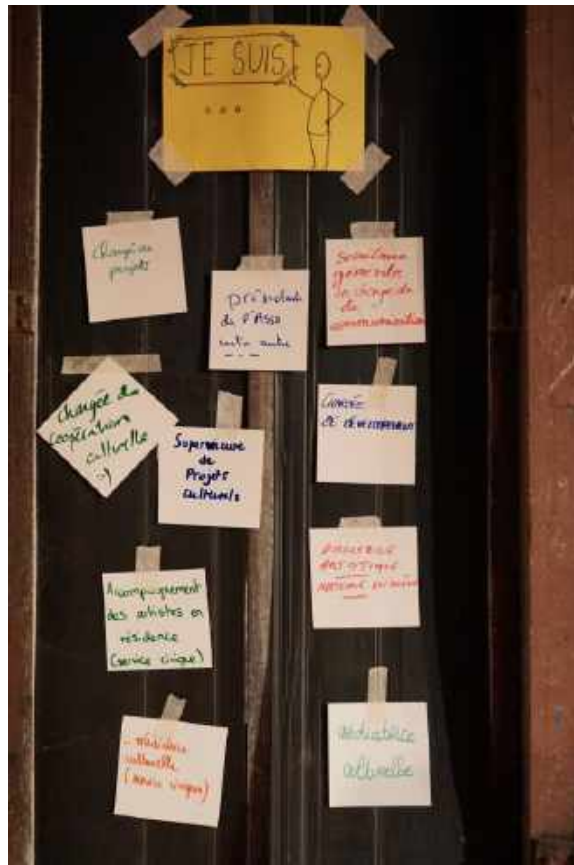 JE SUIS
...
Chargée de
projets
présidente
de l'Asso
entre autre
Secrétaire
générale
en charge de
la
communication
Chargée de
coopération
culturelle
:)
Superviseure
de
Projets
culturels
CHARGÉE
DE DÉVELOPPEMENT
Accompagnement
des artistes en
résidence
(service civique)
ARTISTIQUE
.. médiatrice
culturelle
(service civique)
médiatrice
culturelle